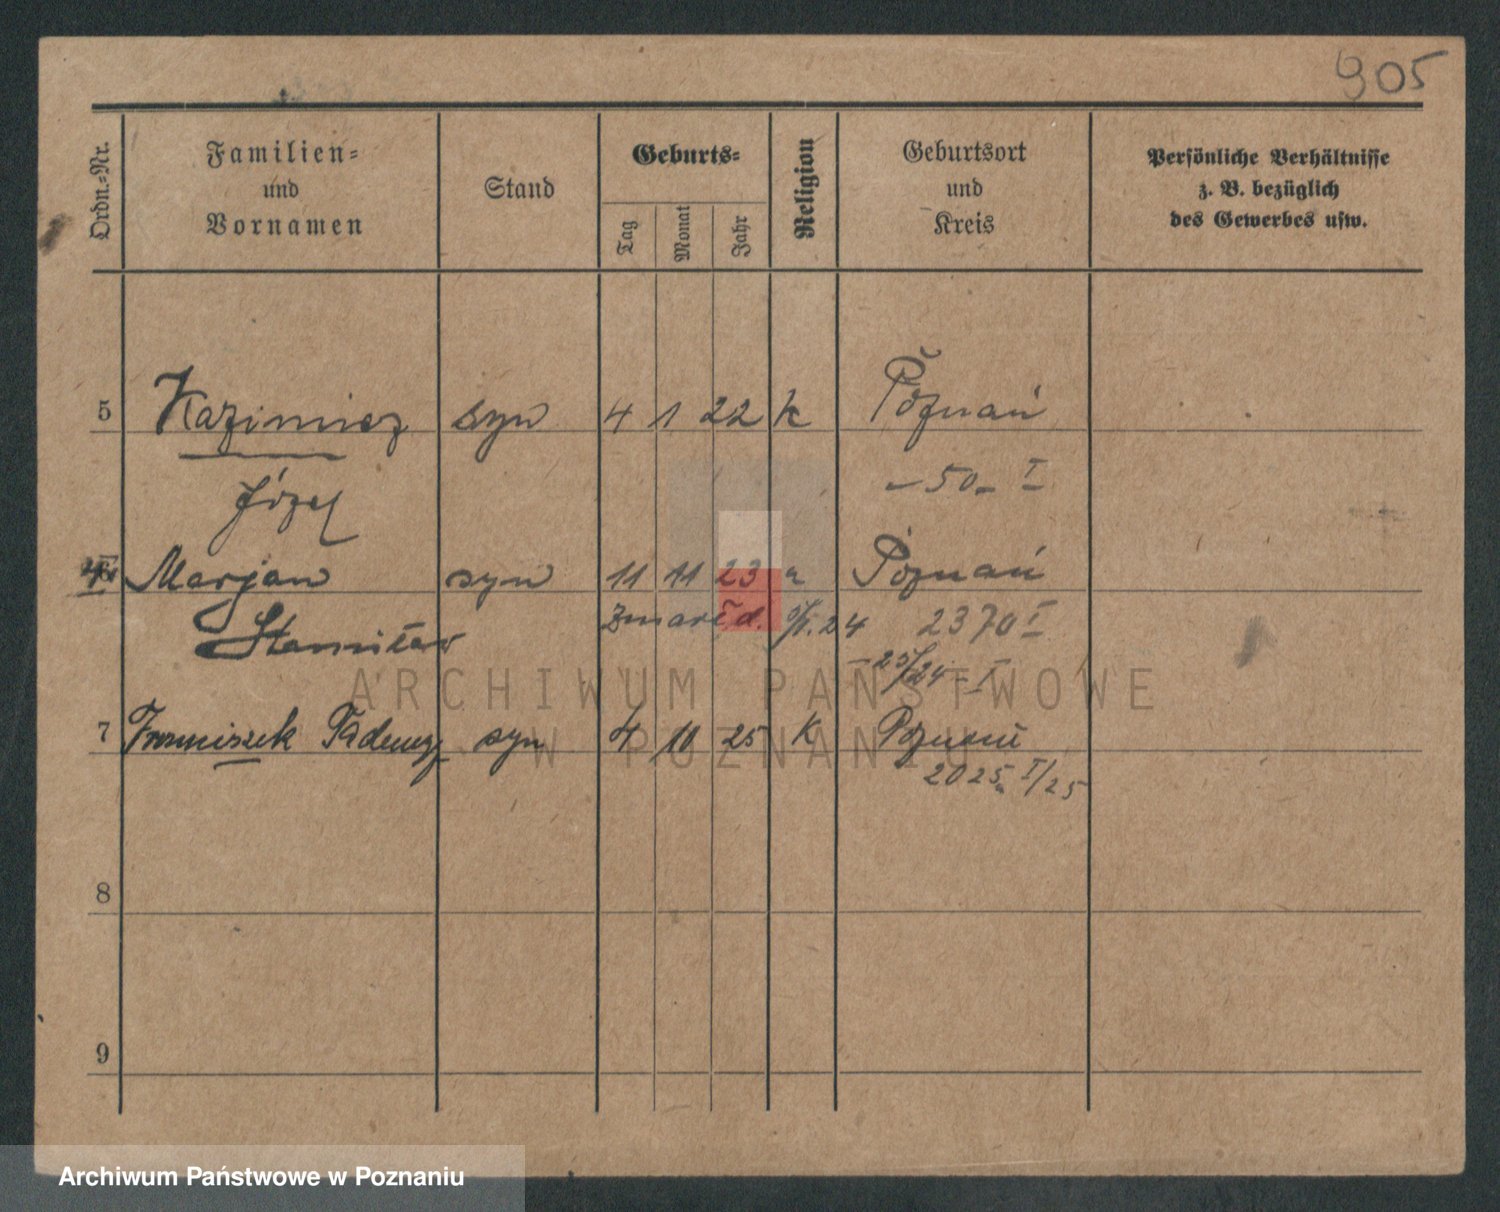 905
Ordn.-Nr.
Familien-
und
Vornamen
Stand
Geburts-
Tag
Monat
Jahr
Religion
Geburtsort
und
Kreis
Persönliche Verhältnisse
z. B. bezüglich
des Gewerbes usw.
5 Kazimierz syn 4 1 22 k Poznań
Józef
– 50 – I
Marjan syn 11 11 23 " Poznań
Stanisław zmarł d. 24 2370 I
25/24 – I
ARCHIWUM PAŃSTWOWE
7 Franciszek Tadeusz syn 4 10 25 K Poznań
W POZNANIU
2025 I/25
8
9
Archiwum Państwowe w Poznaniu